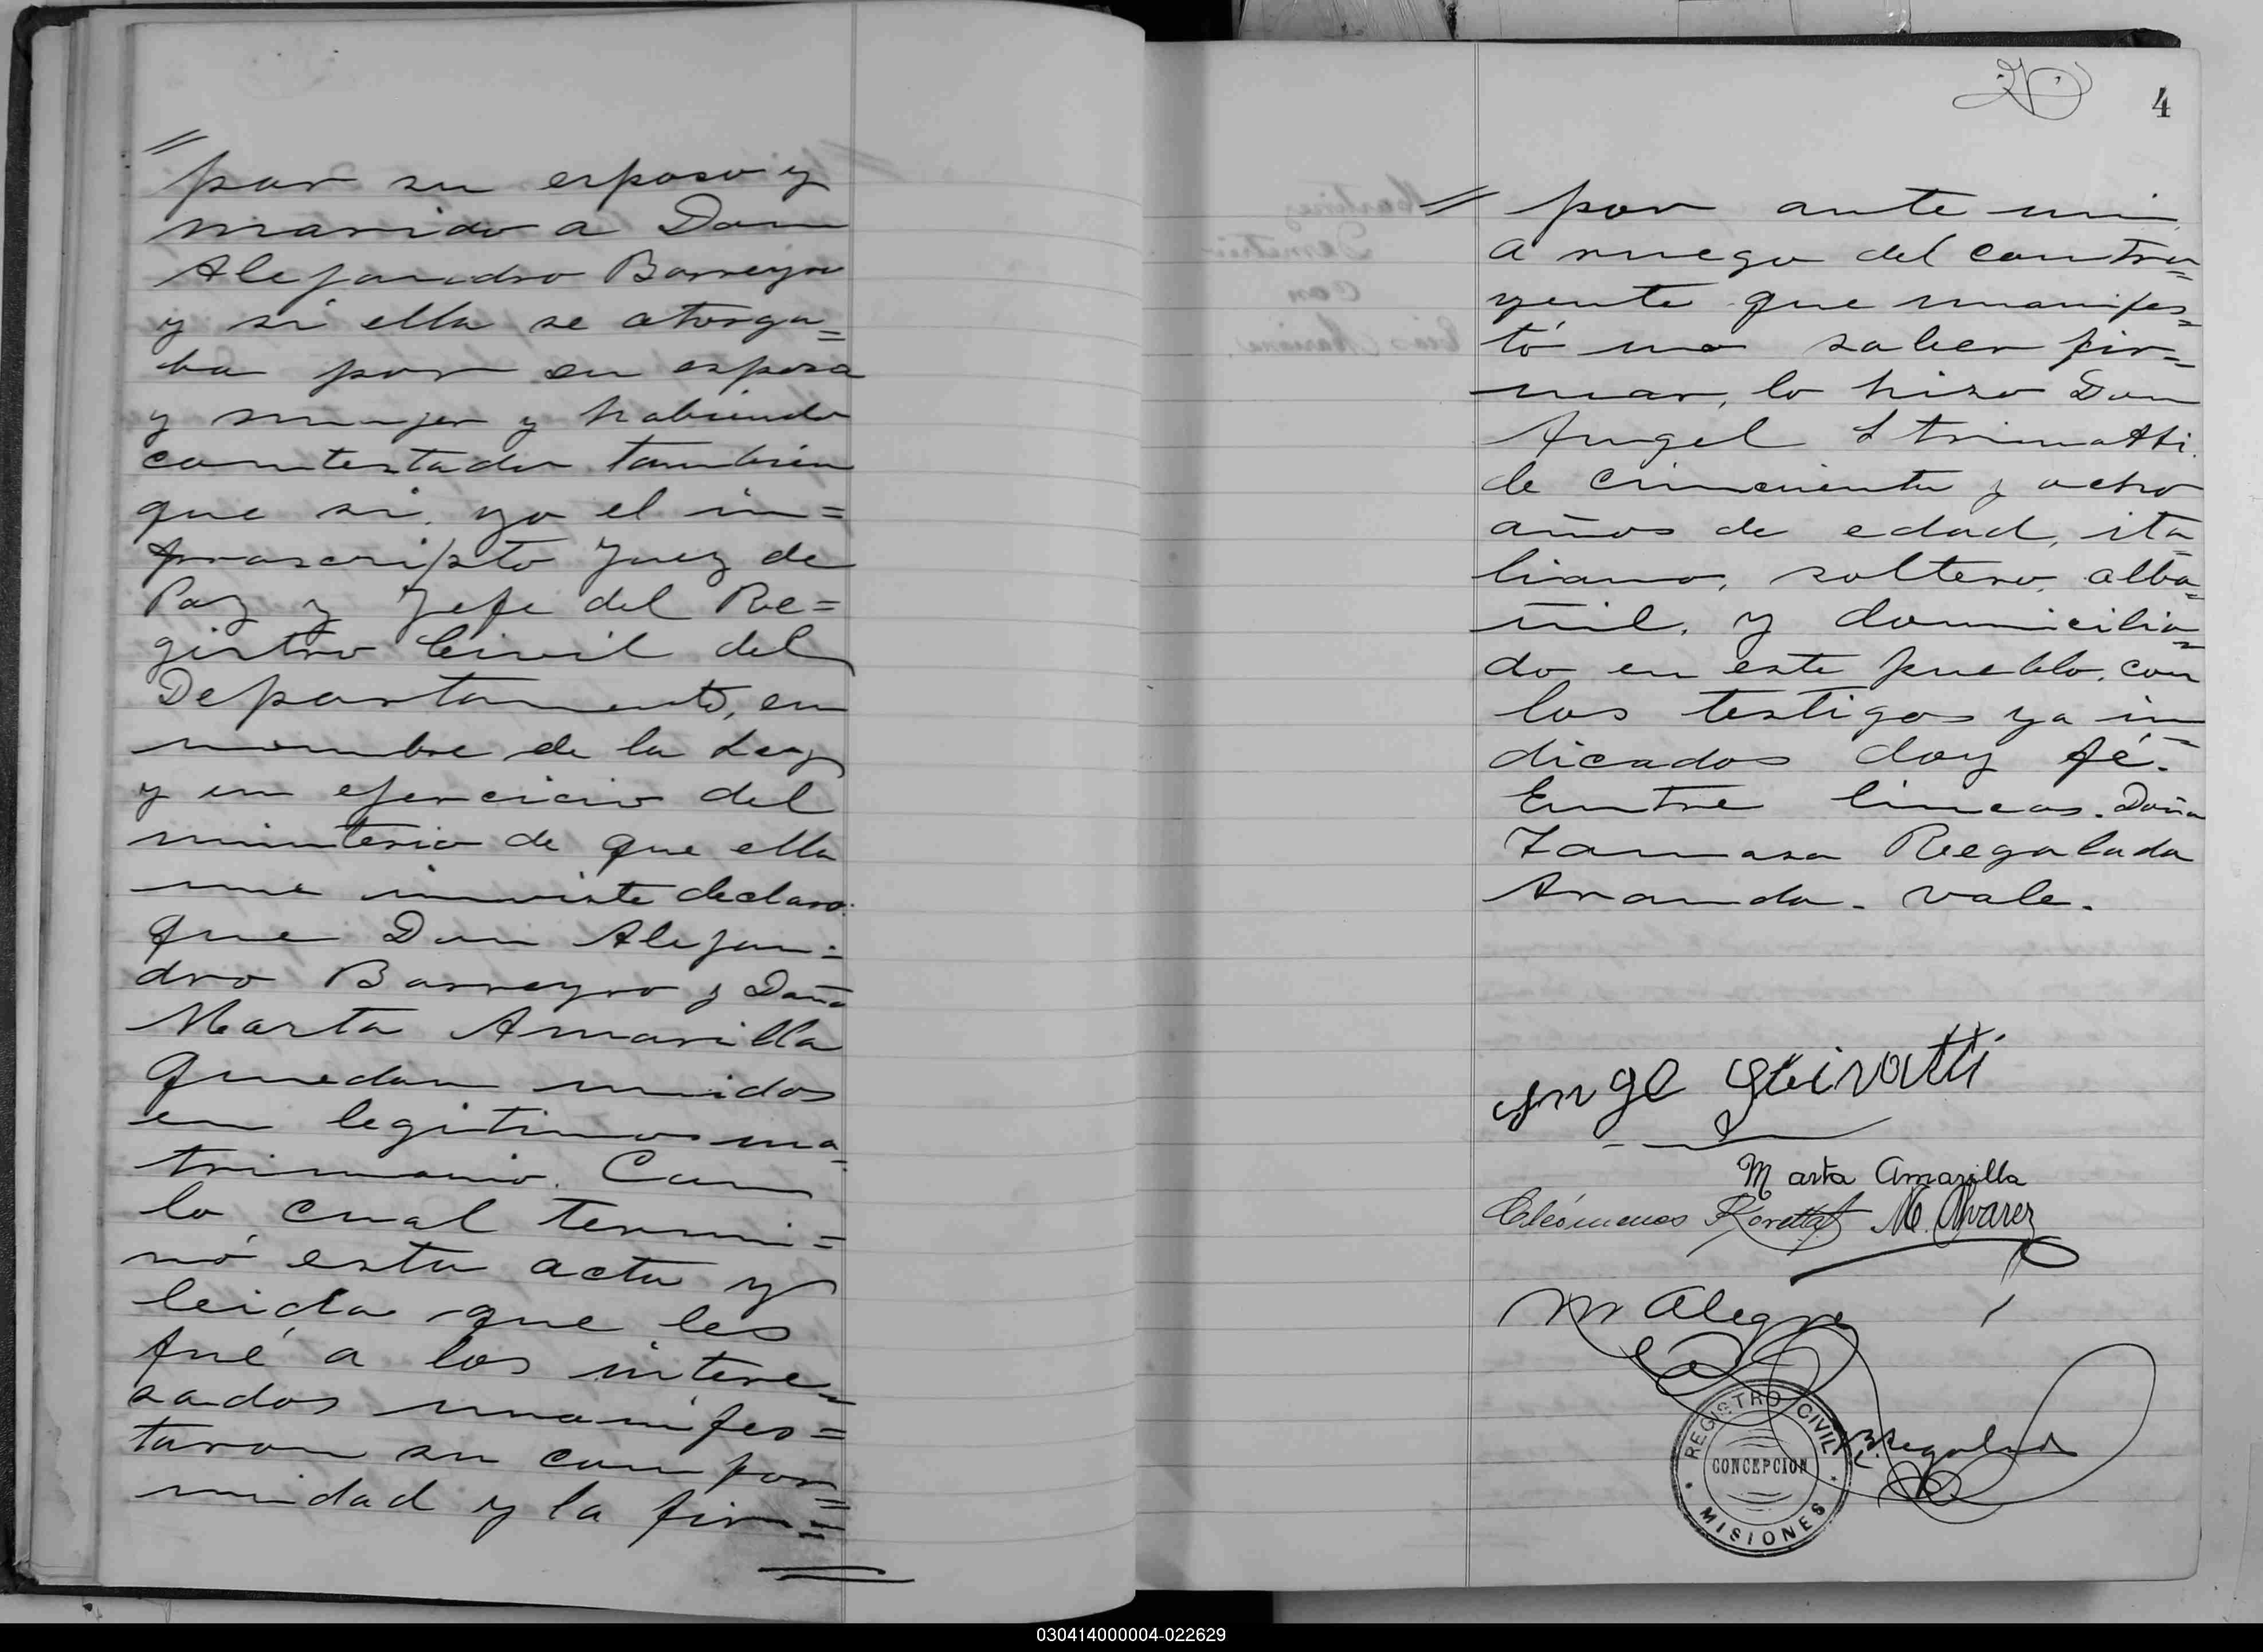 por su esposo y
marido a Don
Alejandro Barreyro
y si ella se otorga=
ba por su esposa
y mujer y habiendo
contestado tambien
que si, yo el in=
frascripto Juez de
Paz y Jefe del Re=
gistro Civil del
Departamento, en
nombre de la Ley
y en ejercicio del
ministerio de que ella
me inviste declaro:
que Don Alejan=
dro Barreyro y Doña
Marta Amarilla
quedan unidos
en legitimo ma=
trimonio. Con
lo cual termi=
nó esta acta y
leida que les
fué a los intere=
sados manifes=
taron su confor=
midad y la fir==
4
por ante mi
a ruego del contra=
yente que manifes=
tó no saber fir=
mar, lo hizo Don
Angel
de cincuenta y ocho
años de edad, ita=
liano, soltero, alba=
ñil, y domicilia=
do en este pueblo, con
los testigos ya in=
dicados doy fé.
Entre lineas. Doña
Tomasa Regalada
Aranda. vale.
Marta Amarilla
Cleómenes M. Alvarez
M Alegre
REGISTRO CIVIL
CONCEPCION
MISIONES
030414000004-022629